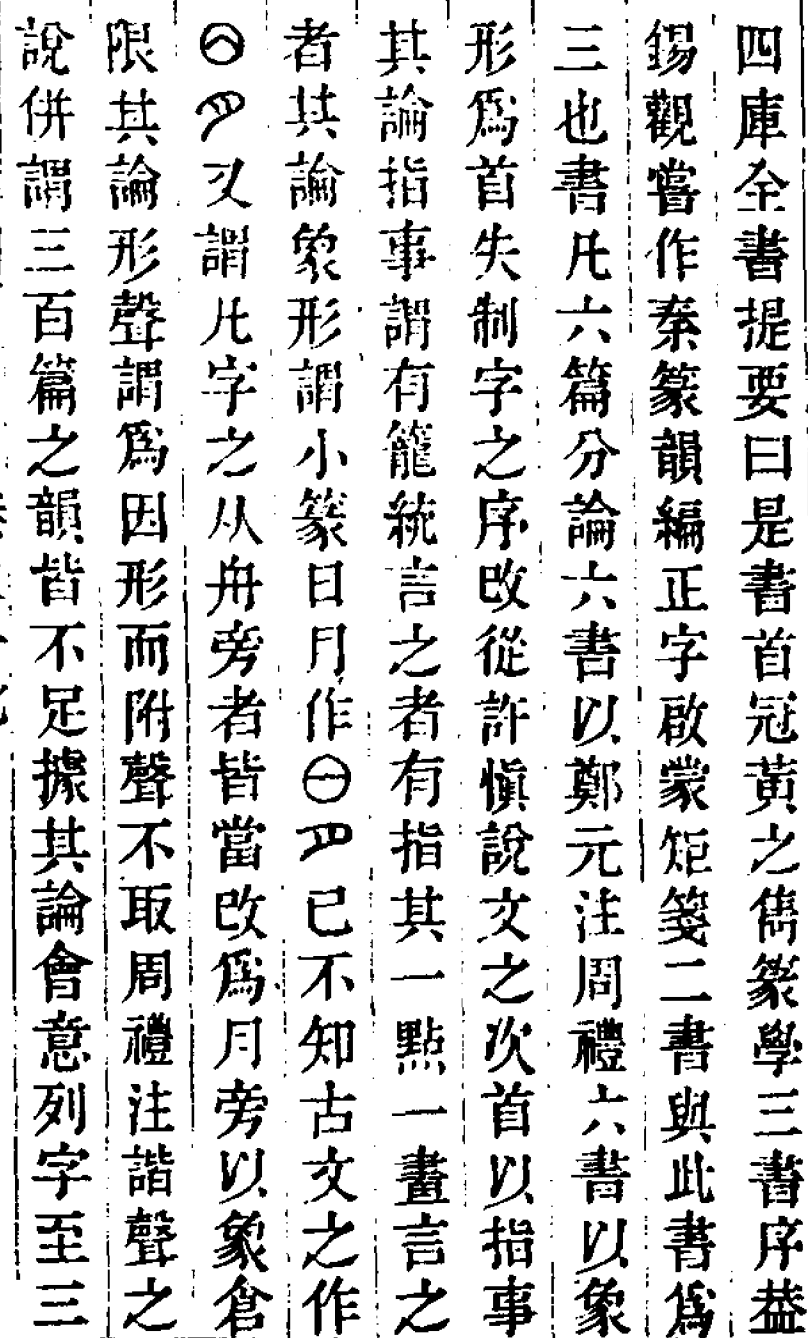 四庫全書提要曰是書首冠黃之雋篆學三書序葢
錫觀嘗作秦篆韻編正字啟蒙矩箋二書與此書爲
三也書凡六篇分論六書以鄭元注周禮六書以象
形爲首失制字之序改從許愼說文之次首以指事
其論指事謂有籠統言之者有指其一點一畫言之
者其論象形謂小篆日月作已不知古文之作
又謂凡字之从舟旁者皆當改爲月旁以象倉
限其論形聲謂爲因形而附聲不取周禮注諧聲之
說併謂三百篇之韻皆不足據其論會意列字至三